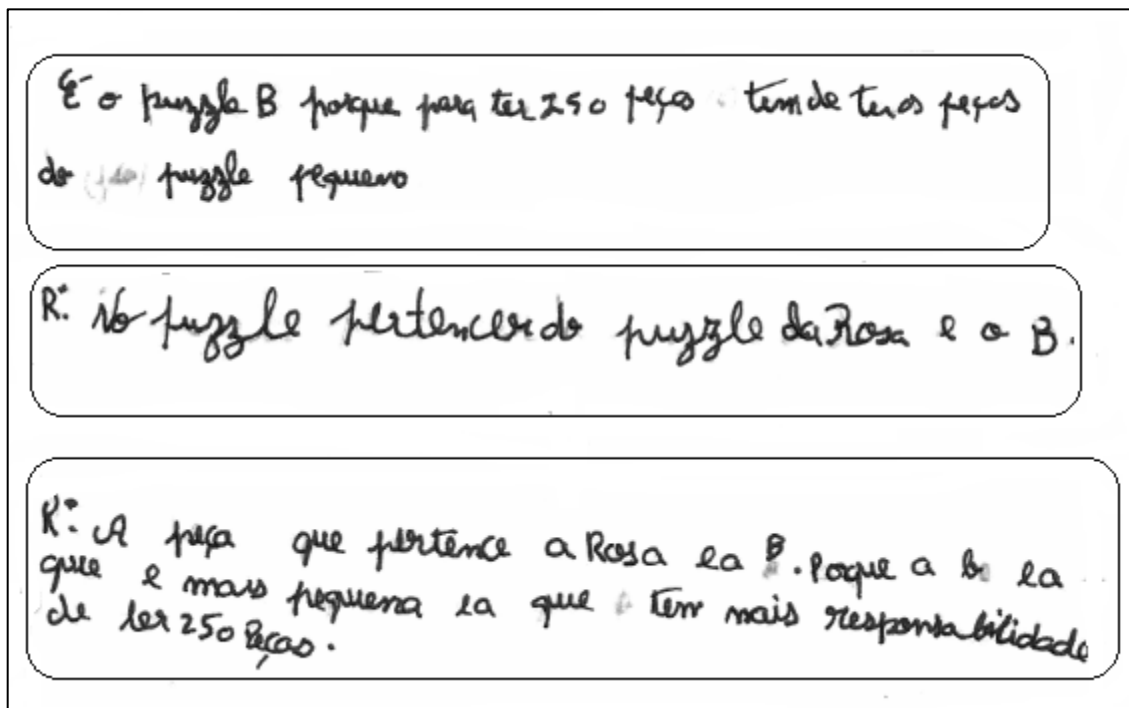 É o puzzle B porque para ter 250 peças tem de ter as peças
do puzzle pequeno
R: No puzzle pertencer do puzzle da Rosa e o B.
R: A peça que pertence a Rosa e a B. Poque a b e a
que e mais pequena e a que tem mais responsabilidade
de ter 250 Peças.